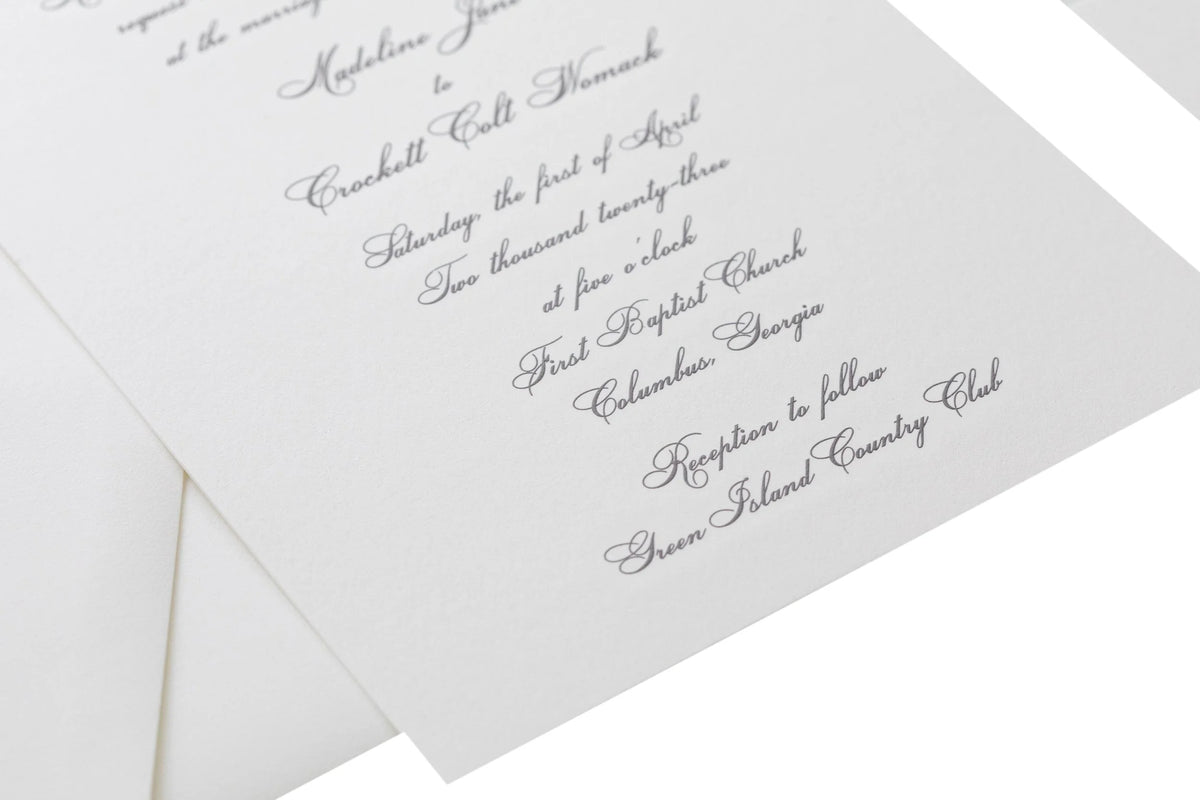 request
at the marriag
Madeline Jane
to
Crockett Colt Womack
Saturday, the first of April
Two thousand twenty-three
at five o'clock
First Baptist Church
Columbus, Georgia
Reception to follow
Green Island Country Club